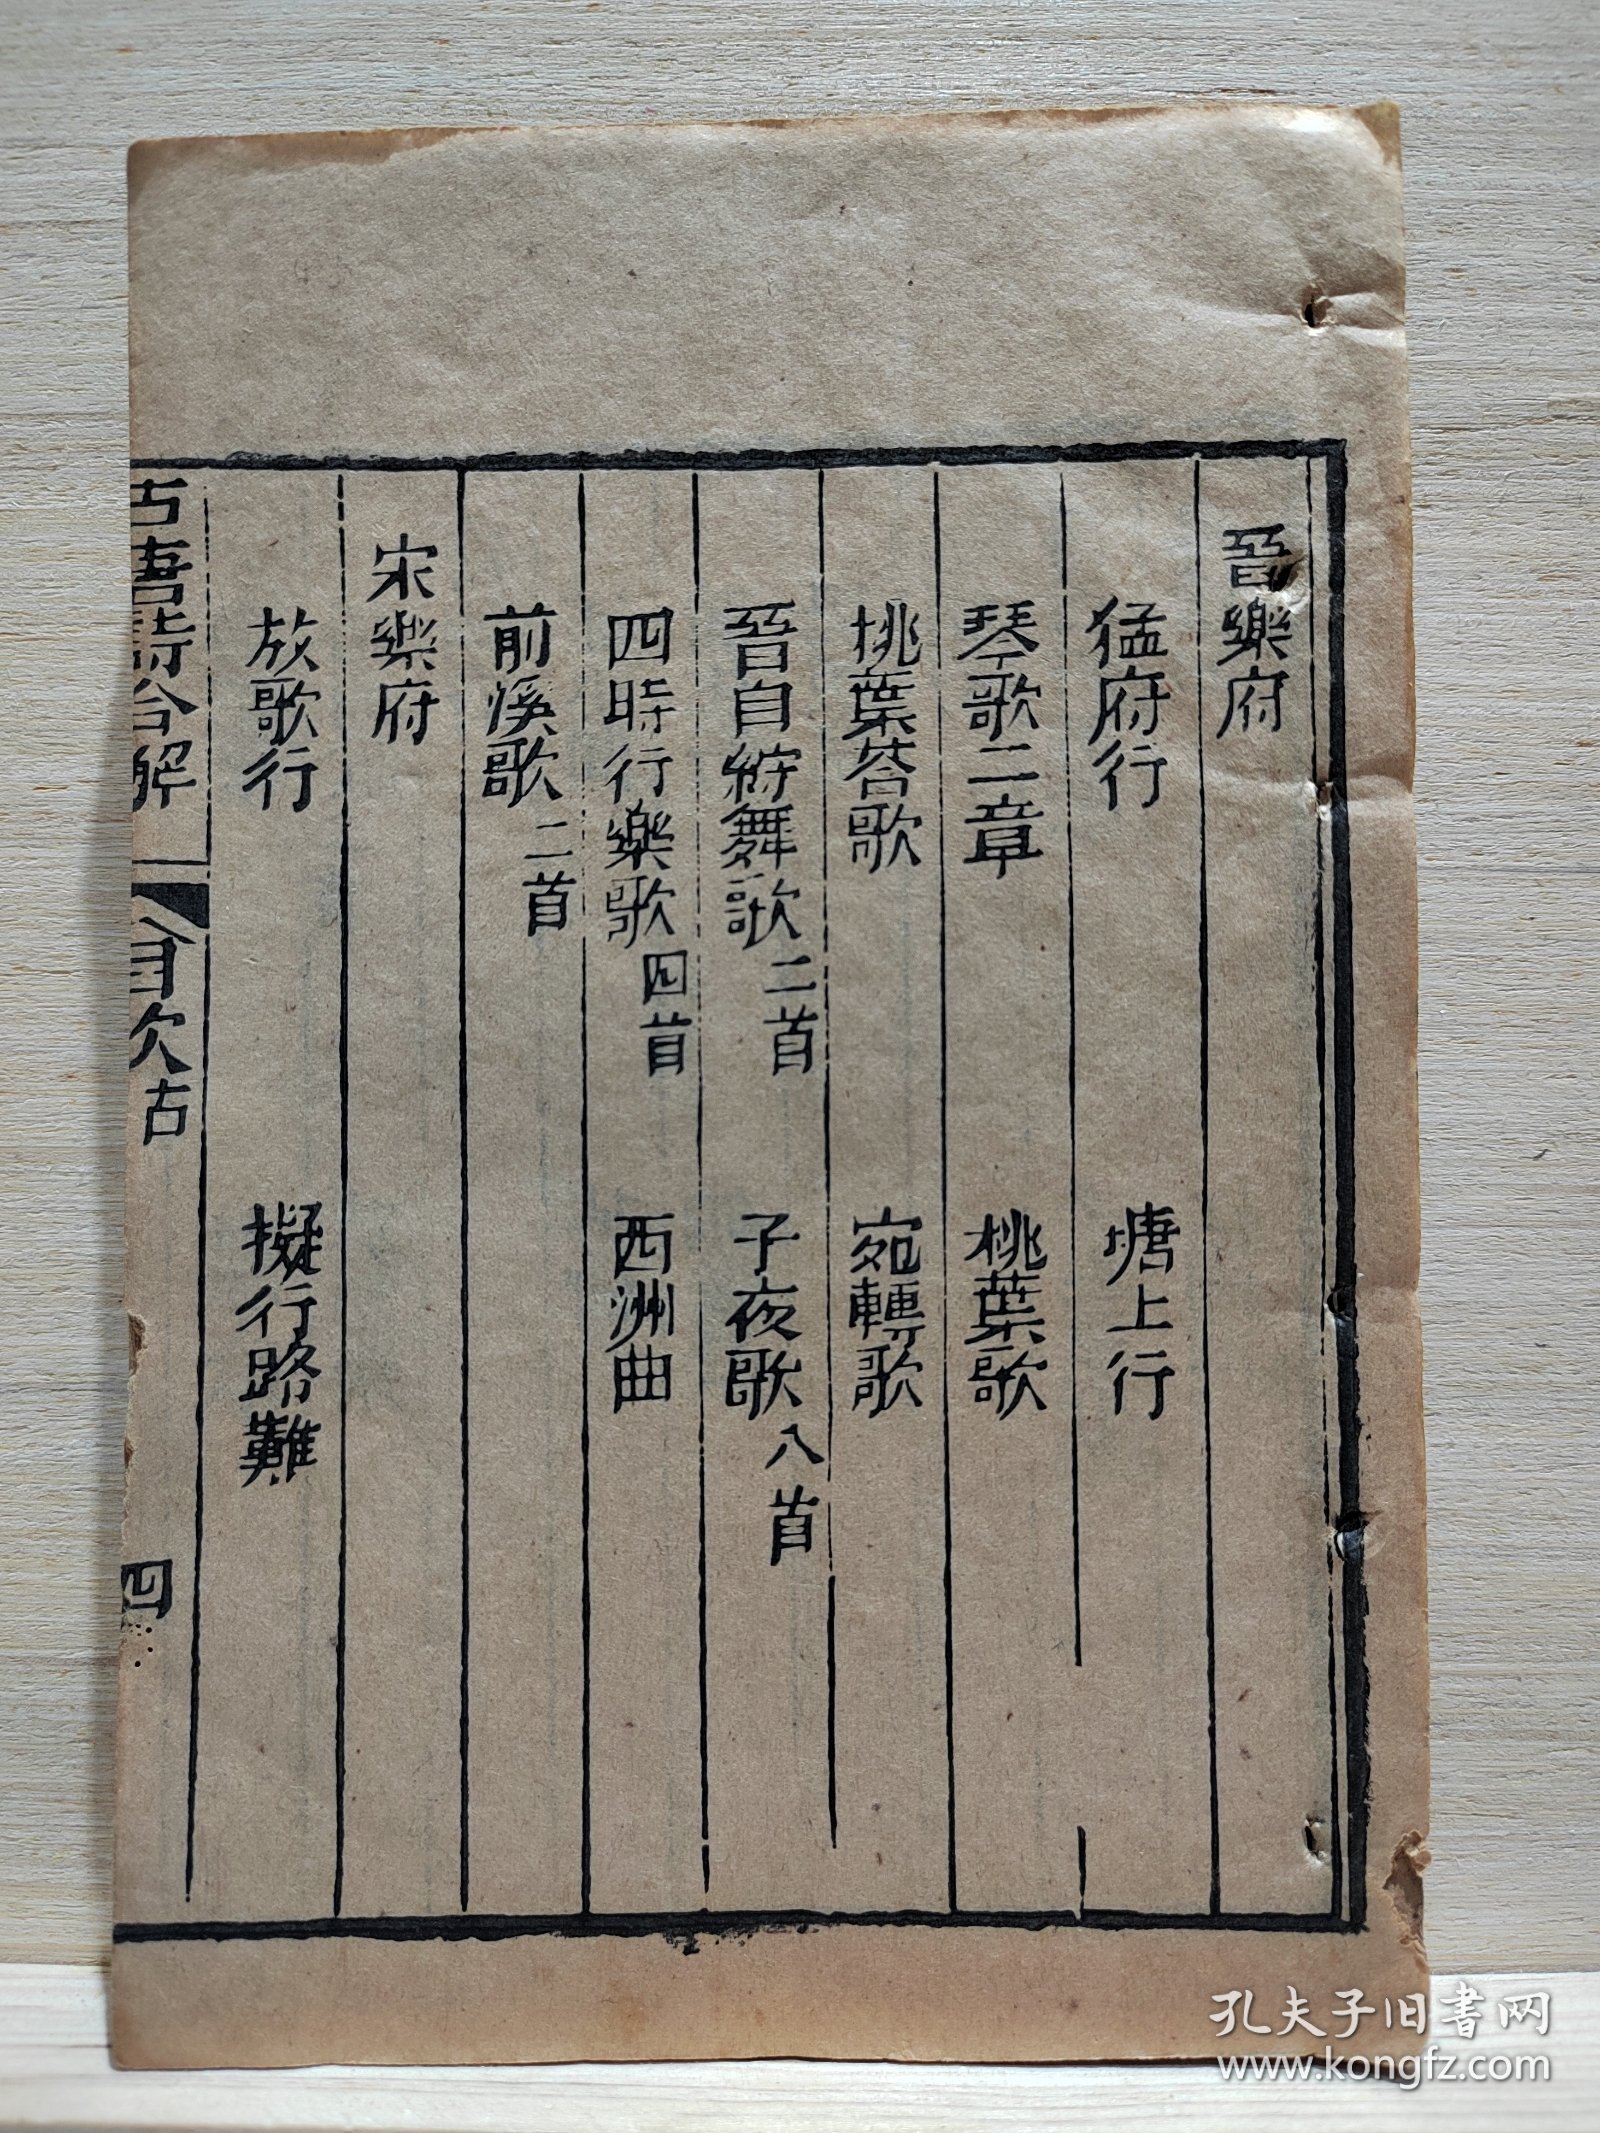 晉樂府
猛府行 塘上行
琴歌二章 桃葉歌
桃葉荅歌 宛轉歌
晉白紵舞歌二首 子夜歌八首
四時行樂歌四首 西洲曲
前溪歌二首
宋樂府
放歌行 擬行路難
古唐詩合解 目次古 四
孔夫子旧书网
www.kongfz.com